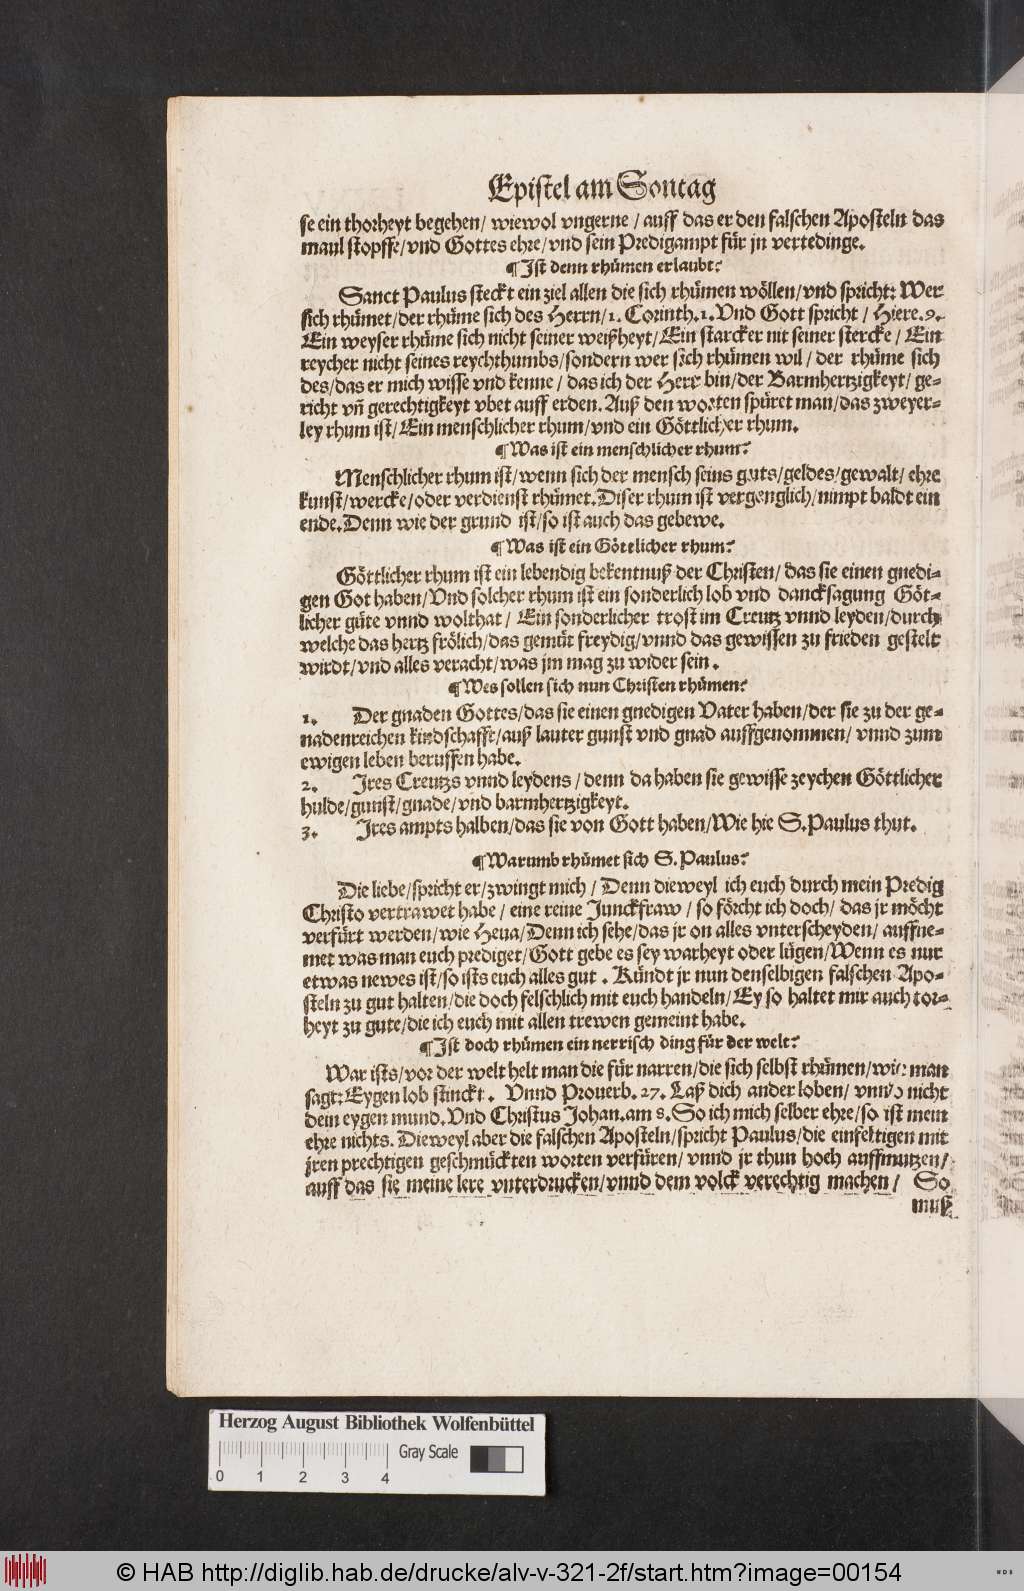 Epistel am Sontag
se ein thorheyt begehen/ wiewol vngerne / auff das er den falschen Aposteln das
maul stopffe/vnd Gottes ehre/vnd sein Predigampt für jn vertedinge.
¶Ist denn rhümen erlaubt?
Sanct Paulus steckt ein ziel allen die sich rhümen wöllen/vnd spricht: Wer
sich rhümet/der rhüme sich des Herrn/1. Corinth.1.Vnd Gott spricht / Hiere.9.
Ein weyser rhüme sich nicht seiner weißheyt/Ein starcker nit seiner stercke / Ein
reycher nicht seines reychthumbs/sondern wer sich rhümen wil / der rhüme sich
des/das er mich wisse vnd kenne / das ich der Herr bin/der Barmhertzigkeyt/ ge=
richt vñ gerechtigkeyt vbet auff erden. Auß den worten spüret man/das zweyer=
ley rhum ist/Ein menschlicher rhum/vnd ein Göttlicher rhum.
¶Was ist ein menschlicher rhum?
Menschlicher rhum ist/wenn sich der mensch seins guts/geldes/gewalt/ ehre
kunst/wercke/oder verdienst rhümet.Diser rhum ist vergenglich/nimpt baldt ein
ende.Denn wie der grund ist/so ist auch das gebewe.
¶Was ist ein Göttlicher rhum?
Göttlicher rhum ist ein lebendig bekentnuß der Christen/ das sie einen gnedi=
gen Got haben/Vnd solcher rhum ist ein sonderlich lob vnd dancksagung Göt=
licher güte vnnd wolthat / Ein sonderlicher trost im Creutz vnnd leyden/durch
welche das hertz frölich/das gemüt freydig/vnnd das gewissen zu frieden gestelt
wirdt/vnd alles veracht/was jm mag zu wider sein.
¶Wes sollen sich nun Christen rhümen?
1. Der gnaden Gottes/das sie einen gnedigen Vater haben/der sie zu der ge=
nadenreichen kindschafft/auß lauter gunst vnd gnad auffgenommen/ vnnd zum
ewigen leben beruffen habe.
2. Jres Creutzs vnnd leydens / denn da haben sie gewisse zeychen Göttlicher
hulde/gunst/gnade/vnd barmhertzigkeyt.
3. Jres ampts halben/das sie von Gott haben/Wie hie S.Paulus thut.
¶Warumb rhümet sich S.Paulus?
Die liebe/spricht er/zwingt mich / Denn dieweyl ich euch durch mein Predig
Christo vertrawet habe / eine reine Junckfraw / so förcht ich doch/ das jr möcht
verfürt werden/wie Heua/Denn ich sehe/das jr on alles vnterscheyden/ auffne=
met was man euch prediget/Gott gebe es sey warheyt oder lügen/Wenn es nur
etwas newes ist/so ists euch alles gut . Kündt jr nun denselbigen falschen Apo=
steln zu gut halten/die doch felschlich mit euch handeln/Ey so haltet mir auch tor=
heyt zu gute/die ich euch mit allen trewen gemeint habe.
¶Ist doch rhümen ein nerrisch ding für der welt?
War ists/vor der welt helt man die für narren/die sich selbst rhümen/wie man
sagt: Eygen lob stinckt . Vnnd Prouerb. 27. Laß dich ander loben/ vnnd nicht
dein eygen mund. Vnd Christus Johan.am 8. So ich mich selber ehre/so ist mein
ehre nichts. Dieweyl aber die falschen Aposteln/spricht Paulus/die einfeltigen mit
jren prechtigen geschmückten worten verfüren/ vnnd jr thun hoch auffmutzen/
auff das sie meine lere vnterdrucken/vnnd dem volck verechtig machen/ So
muß
Herzog August Bibliothek Wolfenbüttel
Gray Scale
0 1 2 3 4
© HAB http://diglib.hab.de/drucke/alv-v-321-2f/start.htm?image=00154